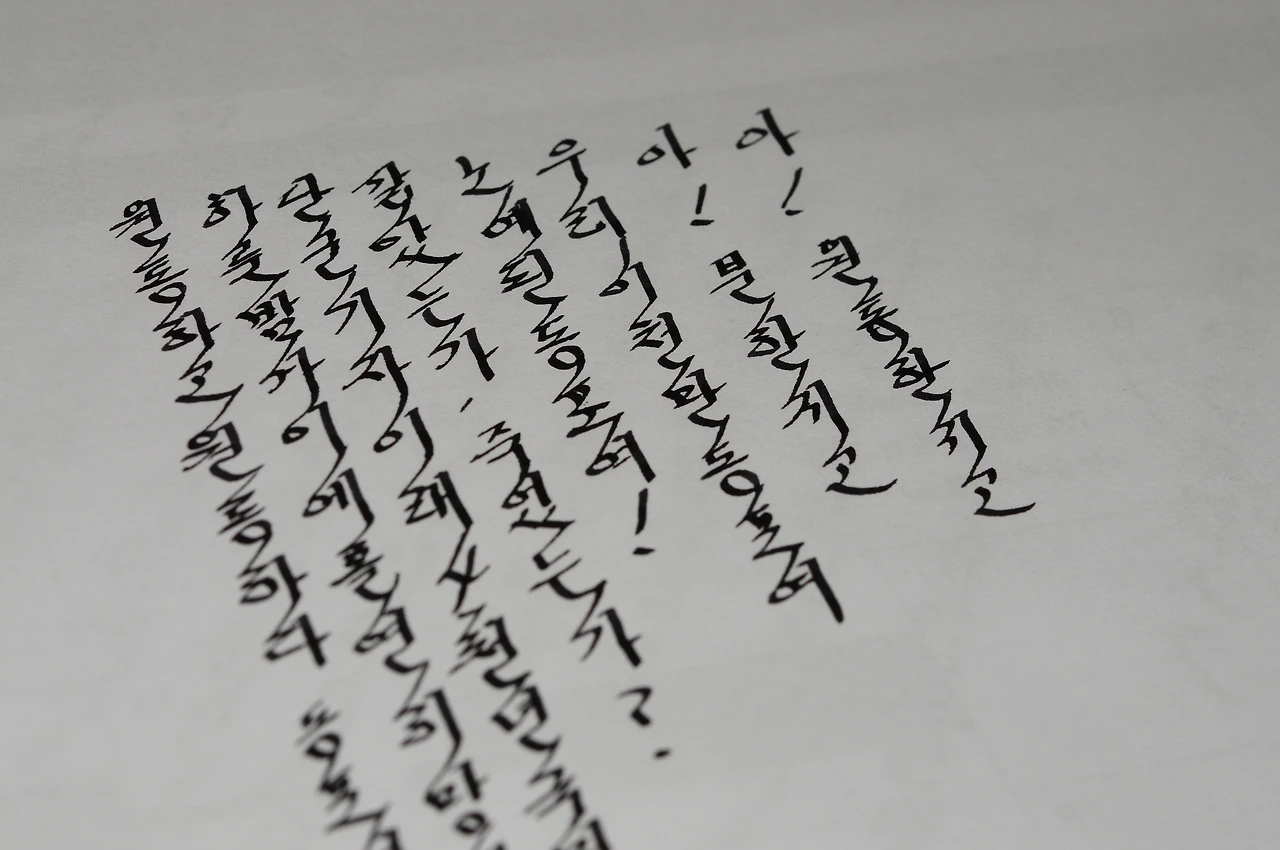 아! 원통한지고
아! 분한지고
우리 이천만 동포여
노예된 동포여!
살았는가, 죽었는가?
단군 기자 이래 사천년 국민
하룻밤 사이에 홀연히 망
원통하고 원통하다 동포